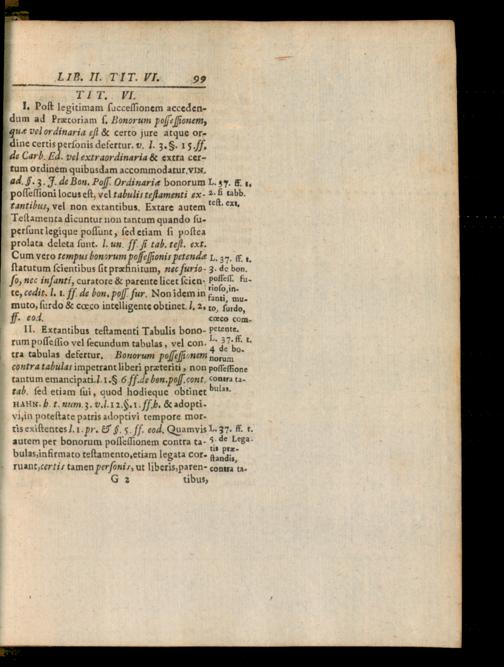 LIB. II. TIT. VI. 99
TIT. VI.
I. Poſt legitimam ſucceſſionem acceden-
dum ad Prætoriam ſ. Bonorum poſſeſſionem,
quæ vel ordinaria eſt & certo jure atque or-
dine certis perſonis defertur. v. l. 3. §. 15. ff.
de Carb. Ed. vel extraordinaria & extra cer-
tum ordinem quibusdam accommodatur. VIN.
ad. §. 3. J. de Bon. Poſſ. Ordinariæ bonorum
poſſeſſioni locus eſt, vel tabulis teſtamenti ex-
tantibus, vel non extantibus. Extare autem
Teſtamenta dicuntur non tantum quando ſu-
perſunt legique poſſunt, ſed etiam ſi poſtea
prolata deleta ſunt. l. un. ff ſi tab. teſt. ext.
Cum vero tempus bonorum poſſeſſionis petendæ
ſtatutum ſcientibus ſit præfinitum, nec furio-
ſo, nec infanti, curatore & parente licet ſcien-
te, cedit. l. 1. ff de bon. poſſ. fur. Non idem in
muto, ſurdo & cœco intelligente obtinet. l. 2.
ff. eod.
II. Extantibus teſtamenti Tabulis bono-
rum poſſeſſio vel ſecundum tabulas, vel con-
tra tabulas defertur. Bonorum poſſeſſionem
contra tabulas impetrant liberi præteriti, non
tantum emancipati. l 1. § 6 ff. de bon. poſſ. cont.
tab. ſed etiam ſui, quod hodieque obtinet
HAHN. h. t. num. 3. v. l. 12. §. 1. ff. h. & adopti-
vi, in poteſtate patris adoptivi tempore mor-
tis exiſtentes l. 1. pr. & §. 5. ff. eod. Quamvis
autem per bonorum poſſeſſionem contra ta-
bulas, infirmato teſtamento, etiam legata cor-
ruant, certis tamen perſonis, ut liberis, paren-
G 2 tibus,
L. 37. ff. t.
2. ſi tabb.
teſt. ext.
L. 37. ff. t.
3. de bon.
poſſeſſ. fu-
rioſo, in-
fanti, mu-
to, ſurdo,
cœco com-
petente.
L. 37. ff. t.
4 de bo-
norum
poſſeſſione
contra ta-
bulas.
L. 37. ff. t.
5. de Lega-
tis præ-
ſtandis,
contra ta-